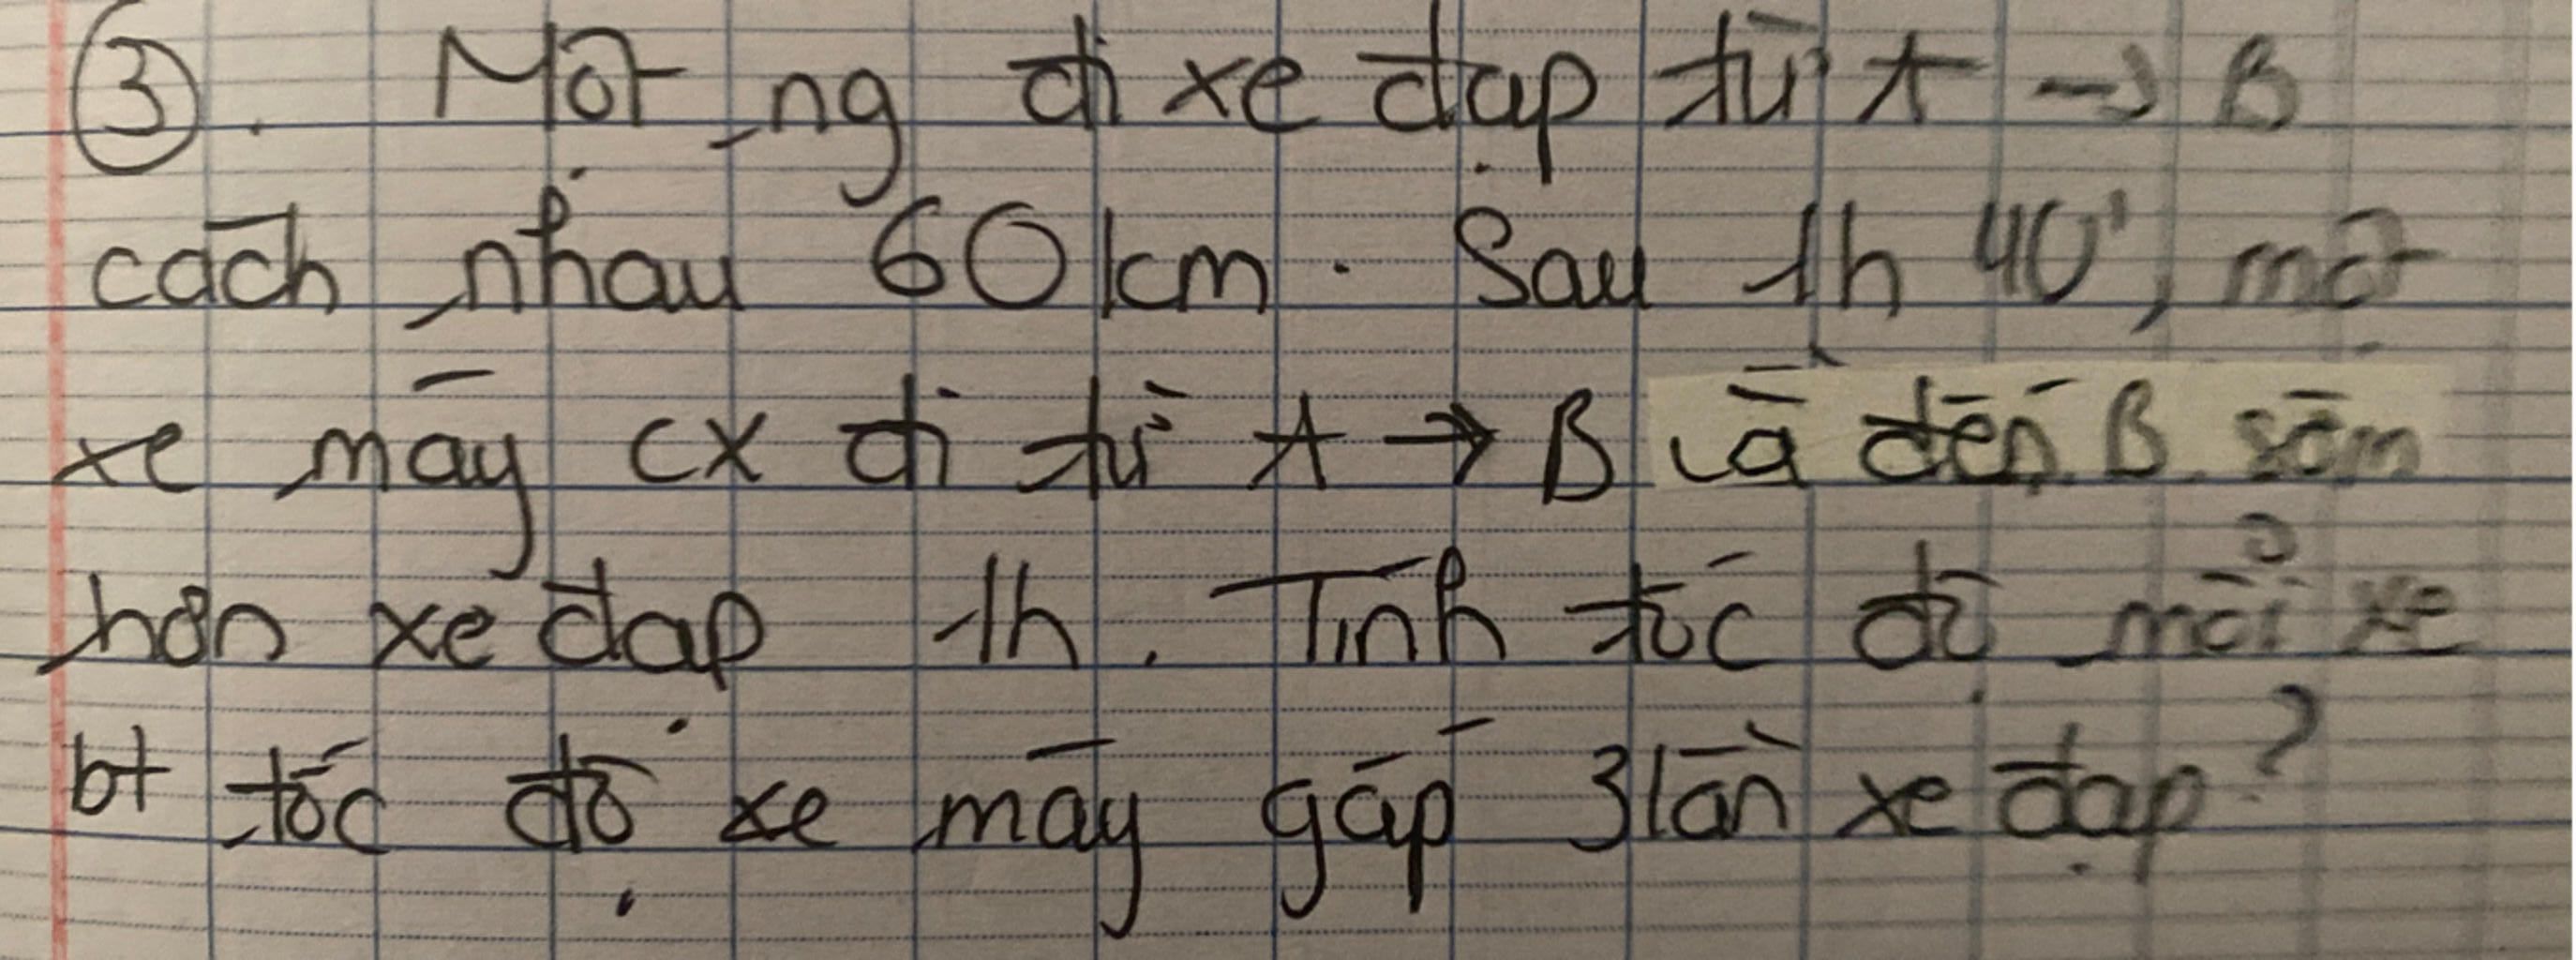 ③. Một ng đi xe đạp từ A → B
cách nhau 60km. Sau 1h 40', một
xe máy cx đi từ A → B và đến B sớm
hơn xe đạp 1h. Tính tốc độ mỗi xe
bt tốc độ xe máy gấp 3 lần xe đạp?